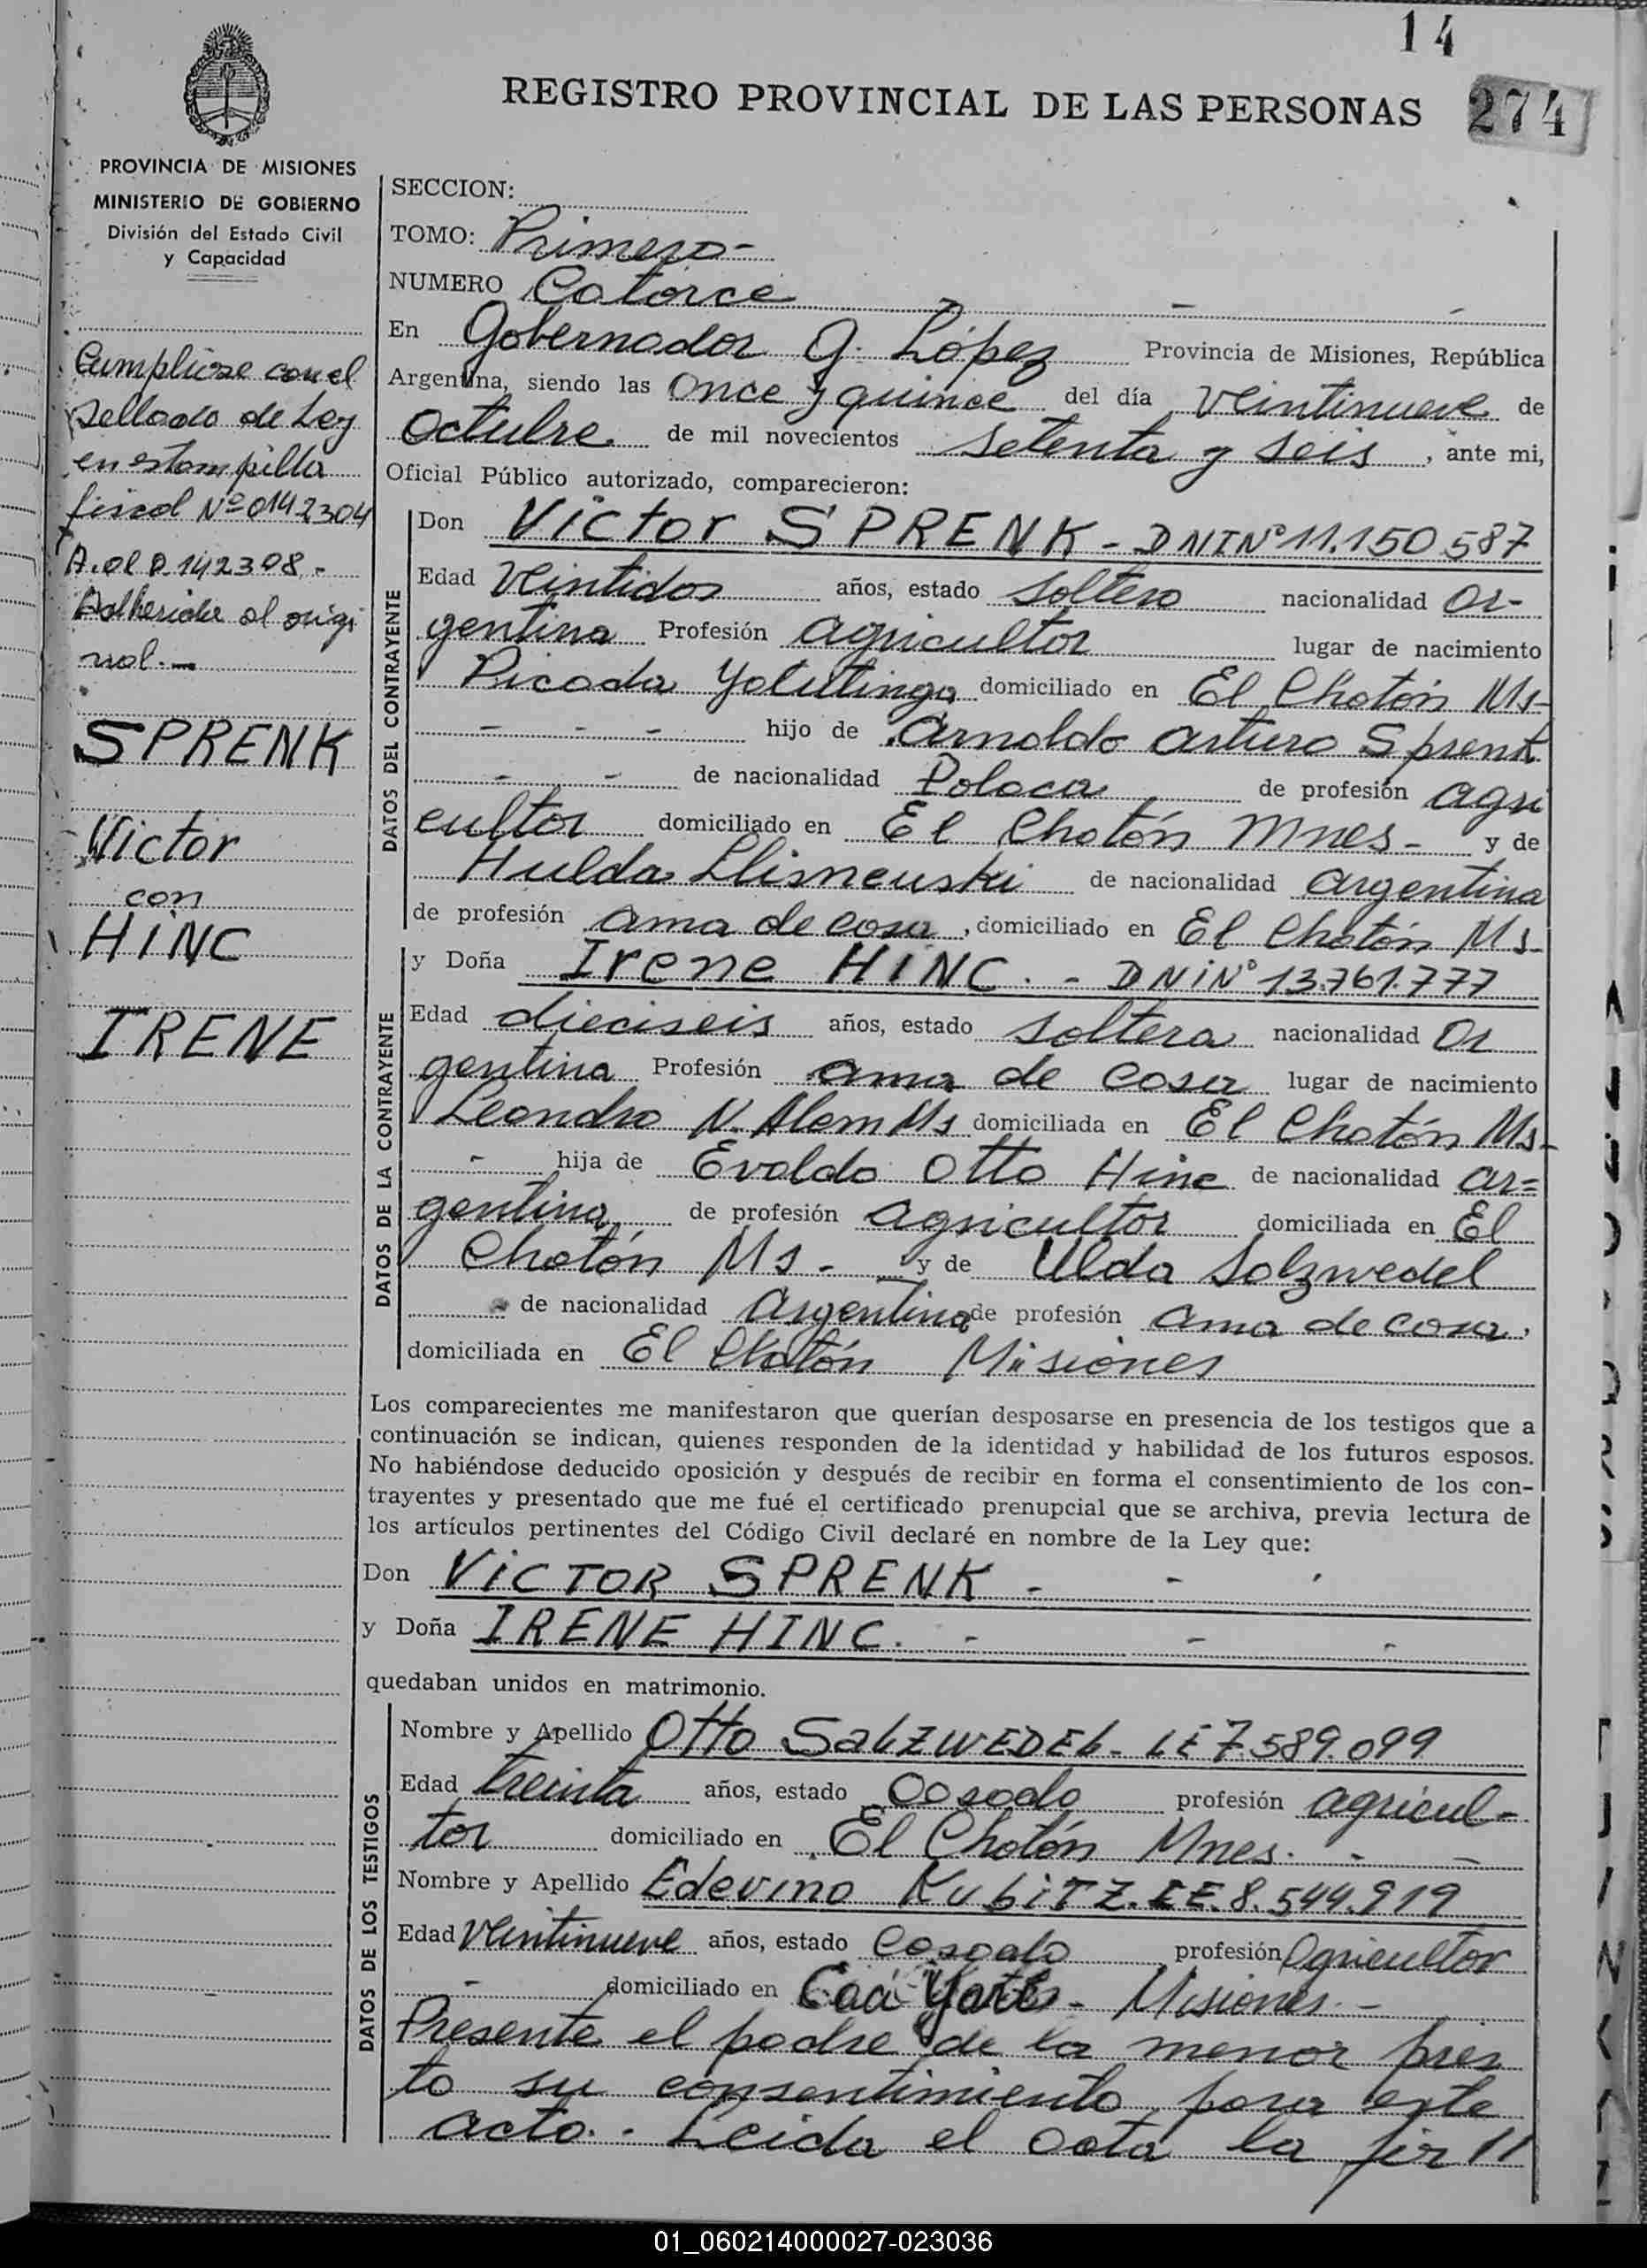 14
REGISTRO PROVINCIAL DE LAS PERSONAS
274
PROVINCIA DE MISIONES
MINISTERIO DE GOBIERNO
División del Estado Civil
y Capacidad
Cumpliose con el
sellado de Ley
en estampilla
fiscal Nº 0142304
A. al 0.142308.-
Adherida al origi
nal.-
SPRENK
Victor
con
HINC
IRENE
SECCION:
TOMO: Primero-
NUMERO Catorce
En Gobernador G. López Provincia de Misiones, República
Argentina, siendo las Once y quince del día Veintinueve de
Octubre de mil novecientos setenta y seis, ante mi,
Oficial Público autorizado, comparecieron:
DATOS DEL CONTRAYENTE
Don Victor SPRENK - DNI Nº 11.150.587
Edad Veintidos años, estado soltero nacionalidad ar-
gentina Profesión agricultor lugar de nacimiento
Picada Yolutinga domiciliado en El Chatón Ms-
hijo de Arnoldo Arturo Sprenk
de nacionalidad Polaca de profesión agri
cultor domiciliado en El Chatón Mnes- y de
Hulda de nacionalidad argentina
de profesión ama de casa, domiciliado en El Chatón Ms-
DATOS DE LA CONTRAYENTE
y Doña Irene HINC. - DNI Nº 13.761.777
Edad dieciseis años, estado soltera nacionalidad ar
gentina Profesión ama de casa lugar de nacimiento
Leandro N. Alem Ms domiciliada en El Chatón Ms-
- hija de Evaldo Otto Hinc de nacionalidad ar=
gentina de profesión agricultor domiciliada en El
Chatón Ms. - y de Ulda Salzwedel
de nacionalidad Argentina de profesión ama de casa,
domiciliada en El Chatón Misiones
Los comparecientes me manifestaron que querían desposarse en presencia de los testigos que a
continuación se indican, quienes responden de la identidad y habilidad de los futuros esposos.
No habiéndose deducido oposición y después de recibir en forma el consentimiento de los con-
trayentes y presentado que me fué el certificado prenupcial que se archiva, previa lectura de
los artículos pertinentes del Código Civil declaré en nombre de la Ley que:
Don VICTOR SPRENK -
y Doña IRENE HINC. -
quedaban unidos en matrimonio.
DATOS DE LOS TESTIGOS
Nombre y Apellido Otto SALZWEDEL- LE 7.589.099
Edad treinta años, estado casado profesión agricul-
tor domiciliado en El Chatón Mnes. -
Nombre y Apellido Edevino KubiTZ. LE. 8.544.919
Edad Veintinueve años, estado casado profesión Agricultor
- domiciliado en Caá Yarí - Misiones.-
Presente el padre de la menor pres
to su consentimiento para este
acto. - Leida el acta la fir//
01_060214000027-023036